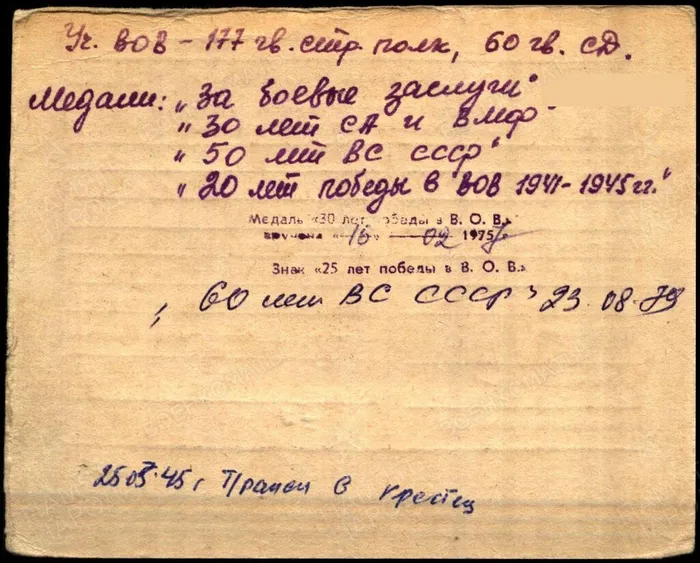 Уч. ВОВ - 177 гв. стр. полк, 60 гв. сд.
Медали: „За боевые заслуги"
„30 лет СА и ВМФ"
„50 лет ВС СССР"
„20 лет победы в ВОВ 1941-1945 гг."
Медаль «30 лет победы в В. О. В.»
вручена «16» 02 1975
Знак «25 лет победы в В. О. В.»
„60 лет ВС СССР" 23.08.79
25 03 45 г Т/ранен в крестец